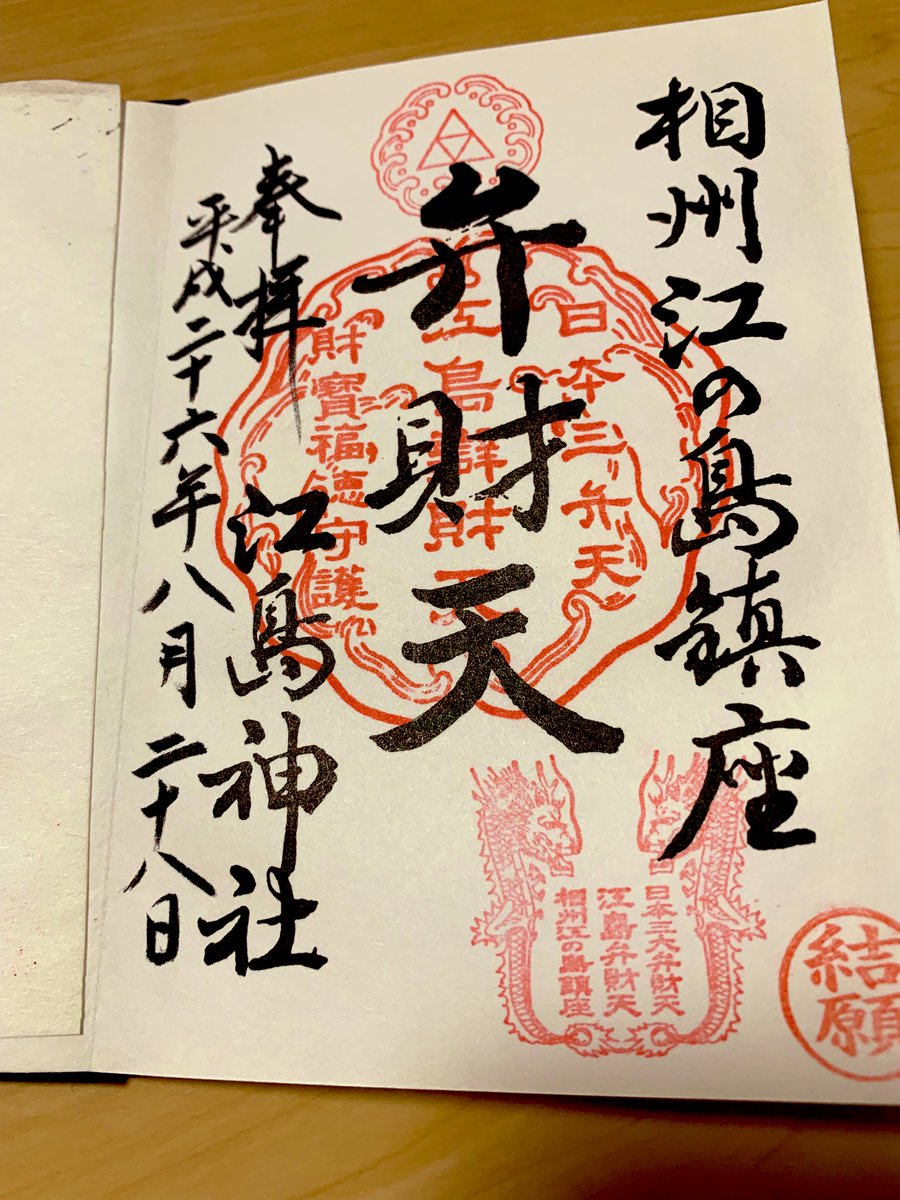 相州江の島鎮座
弁財天
奉拝
江島神社
平成二十六年八月二十八日
日本三弁天
江島辯財天
財寶福徳守護
日本三大弁財天
江島弁財天
相州江の島鎮座
結願